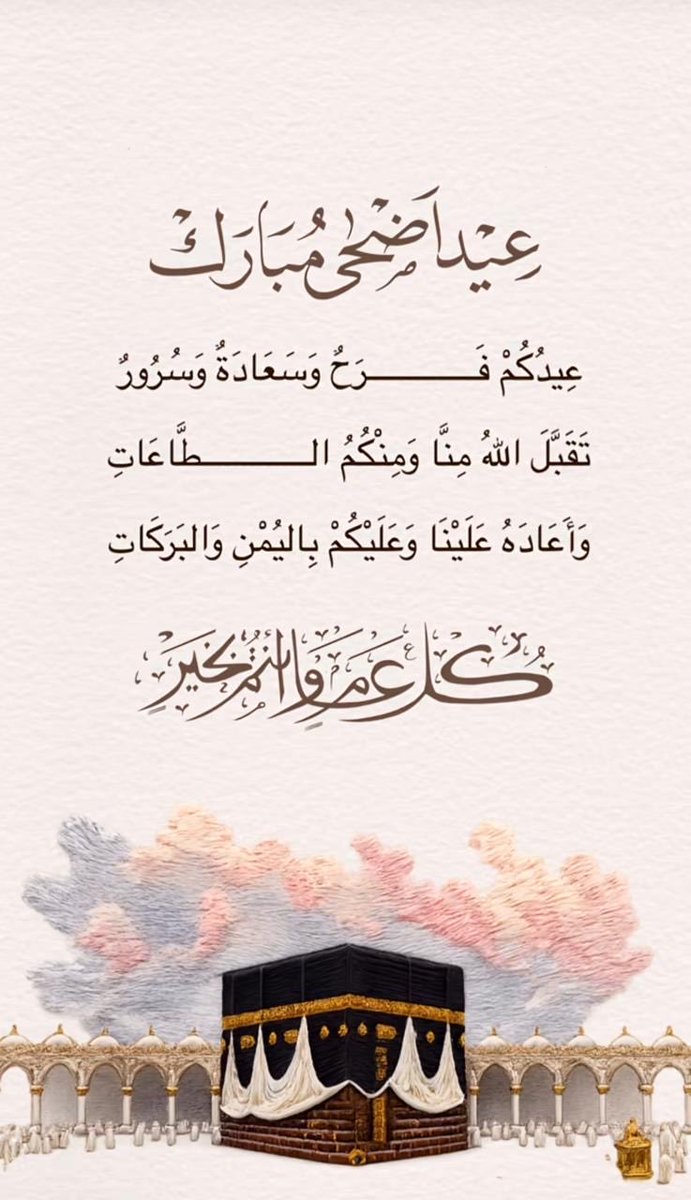 عِيْد اَضْحَى مُبَارَكْ
عِيدُكُمْ فَـــــــــرَحٌ وَسَعَادَةٌ وَسُرُورٌ
تَقَبَّلَ اللهُ مِنَّا وَمِنْكُمُ الـــــــــطَّاعَاتِ
وَأَعَادَهُ عَلَيْنَا وَعَلَيْكُمْ بِاليُمْنِ وَالبَرَكَاتِ
كُل عَام وَانتُم بَخَيرٍ